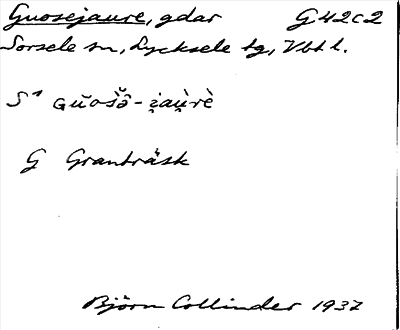 Guosejaure, gdar G42c2
Sorsele sn, Lycksele tg, Vbt l.
S¹ Gŭosɔ̂̆-i̯aù̯rè
G Granträsk
Björn Collinder 1937